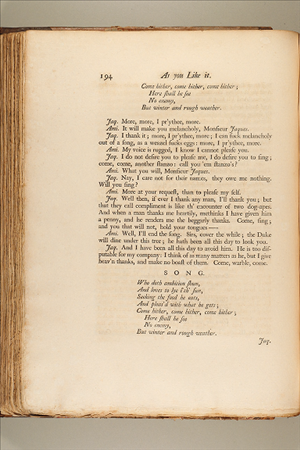 194 As you Like it.
Come hither, come hither, come hither;
Here shall he see
No enemy,
But winter and rough weather.
Jaq. More, more, I pr'ythee, more.
Ami. It will make you melancholy, Monsieur Jaques.
Jaq. I thank it; more, I pr'ythee, more; I can suck melancholy
out of a song, as a weazel sucks eggs: more, I pr'ythee, more.
Ami. My voice is rugged, I know I cannot please you.
Jaq. I do not desire you to please me, I do desire you to sing;
come, come, another stanzo: call you 'em stanzo's?
Ami. What you will, Monsieur Jaques.
Jaq. Nay, I care not for their names, they owe me nothing.
Will you sing?
Ami. More at your request, than to please my self.
Jaq. Well then, if ever I thank any man, I'll thank you; but
that they call compliment is like th' encounter of two dog-apes.
And when a man thanks me heartily, methinks I have given him
a penny, and he renders me the beggarly thanks. Come, sing;
and you that will not, hold your tongues——
Ami. Well, I'll end the song. Sirs, cover the while; the Duke
will dine under this tree; he hath been all this day to look you.
Jaq. And I have been all this day to avoid him. He is too dis-
putable for my company: I think of as many matters as he, but I give
heav'n thanks, and make no boast of them. Come, warble, come.
SONG.
Who doth ambition shun,
And loves to lye i'th' sun,
Seeking the food he eats,
And pleas'd with what he gets;
Come hither, come hither, come hither;
Here shall he see
No enemy,
But winter and rough weather.
Jaq.